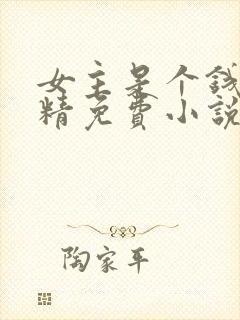 女主是个钱
精免费小說
陶家平